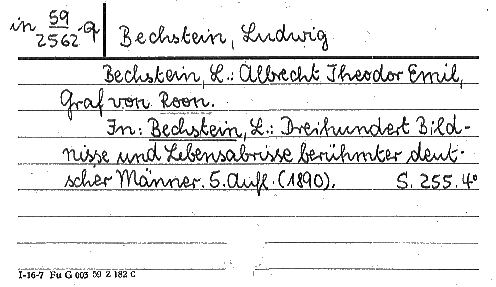 in 59/2562-9 Bechstein, Ludwig
Bechstein, L.: Albrecht Theodor Emil,
Graf von Roon.
In: Bechstein, L.: Dreihundert Bild-
nisse und Lebensabrisse berühmter deut-
scher Männer. 5. Aufl. (1890). S. 255. 4°
I-16-7 Fu G 003 59 Z 182 C